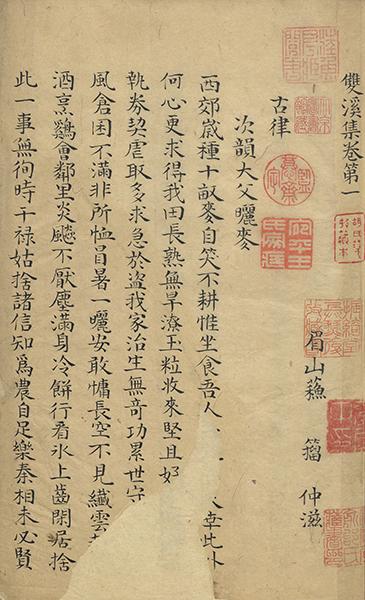 雙溪集卷第一
眉山蘓籀仲滋
古律
次韻大父曬麥
西郊嵗種十畝麥自笑不耕惟坐食吾人
幸此外
何心更求得我田長熟無旱潦玉粒收來堅且好
執券契虐取多求急於盜我家治生無竒功累世守
風倉囷不滿非所恤冐暑一曬安敢慵長空不見纎雲
酒烹鷄會鄰里炎飈不厭塵滿身冷餅行看氷上齒閑居捨
此一事無徇時干禄姑捨諸信知爲農自足樂秦相未必賢